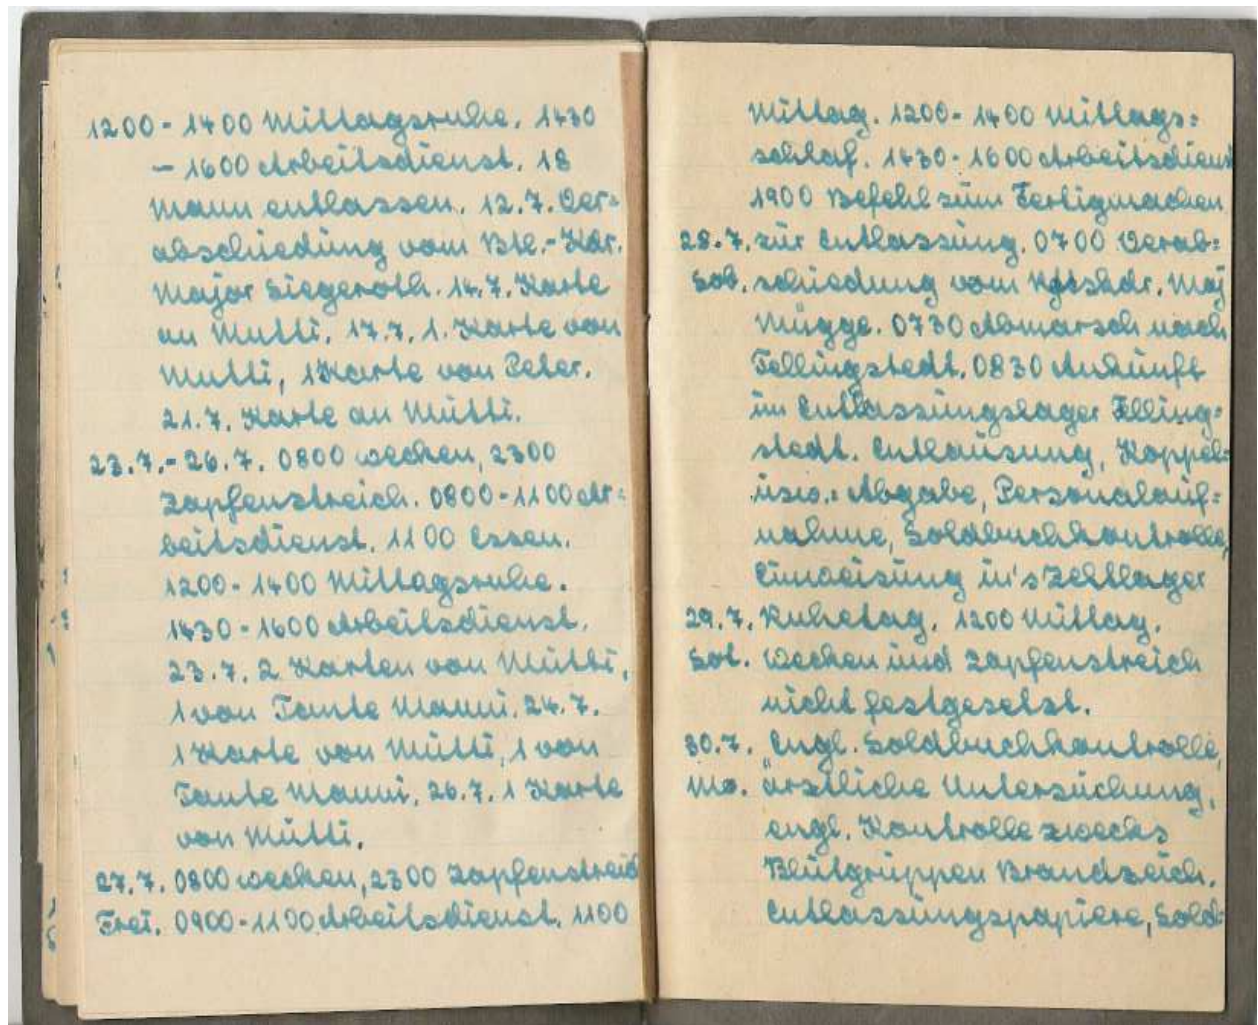 1200 - 1400 Mittagsruhe. 1430
- 1600 Arbeitsdienst. 18
Mann entlassen. 12.7. Ver=
abschiedung vom Btl.-Kdr.
Major Siegeroth. 14.7. Karte
an Mutti. 17.7. 1. Karte von
Mutti, 1 Karte von Peter.
21.7. Karte an Mutti.
23.7.- 26.7. 0800 wecken, 2300
Zapfenstreich. 0800-1100 Ar=
beitsdienst. 1100 Essen.
1200-1400 Mittagsruhe.
1430-1600 Arbeitsdienst.
23.7. 2 Karten von Mutti,
1 von Tante Manni. 24.7.
1 Karte von Mutti, 1 von
Tante Manni. 26.7. 1 Karte
von Mutti.
27.7. 0800 wecken, 2300 Zapfenstreich
Frei. 0900-1100 Arbeitsdienst. 1100
Mittag. 1200-1400 Mittags=
schlaf. 1430-1600 Arbeitsdienst
1900 Befehl zum Fertigmachen
28.7. zur Entlassung. 0700 Verab=
Sob. schiedung vom Maj
Mügge. 0730 Abmarsch nach
Tellingstedt. 0830 Ankunft
im Entlassungslager Telling=
stedt. Entlausung, Koppel=
usw.= Abgabe, Personalauf=
nahme, Soldbuchkontrolle,
Einweisung in's Zeltlager
29.7. Ruhetag. 1200 Mittag.
Sot. Wecken und Zapfenstreich
nicht festgesetzt.
30.7. Engl. Soldbuchkontrolle,
Mo. ärztliche Untersuchung,
engl. Kontrolle zwecks
Blutgruppen Brandzeich.
Entlassungspapiere, Sold=